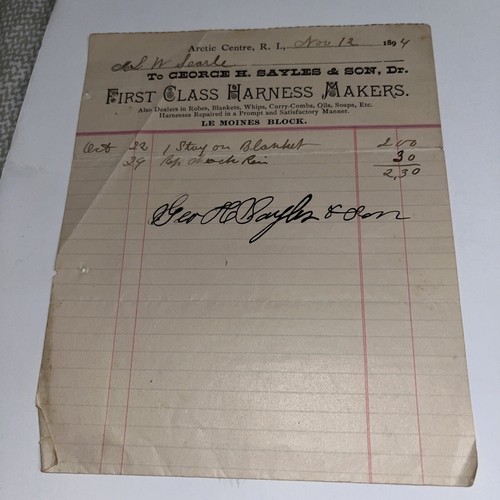 Arctic Centre, R. I., Nov 12 1894
W Searle
To GEORGE H. SAYLES & SON, Dr.
FIRST CLASS HARNESS MAKERS.
Also Dealers in Robes, Blankets, Whips, Curry-Combs, Oils, Soaps, Etc.
Harnesses Repaired in a Prompt and Satisfactory Manner.
LE MOINES BLOCK.
Oct 22 1 Stay on Blanket 2 00
29 Rep Rein 30
2,30
Geo H Sayles & Son